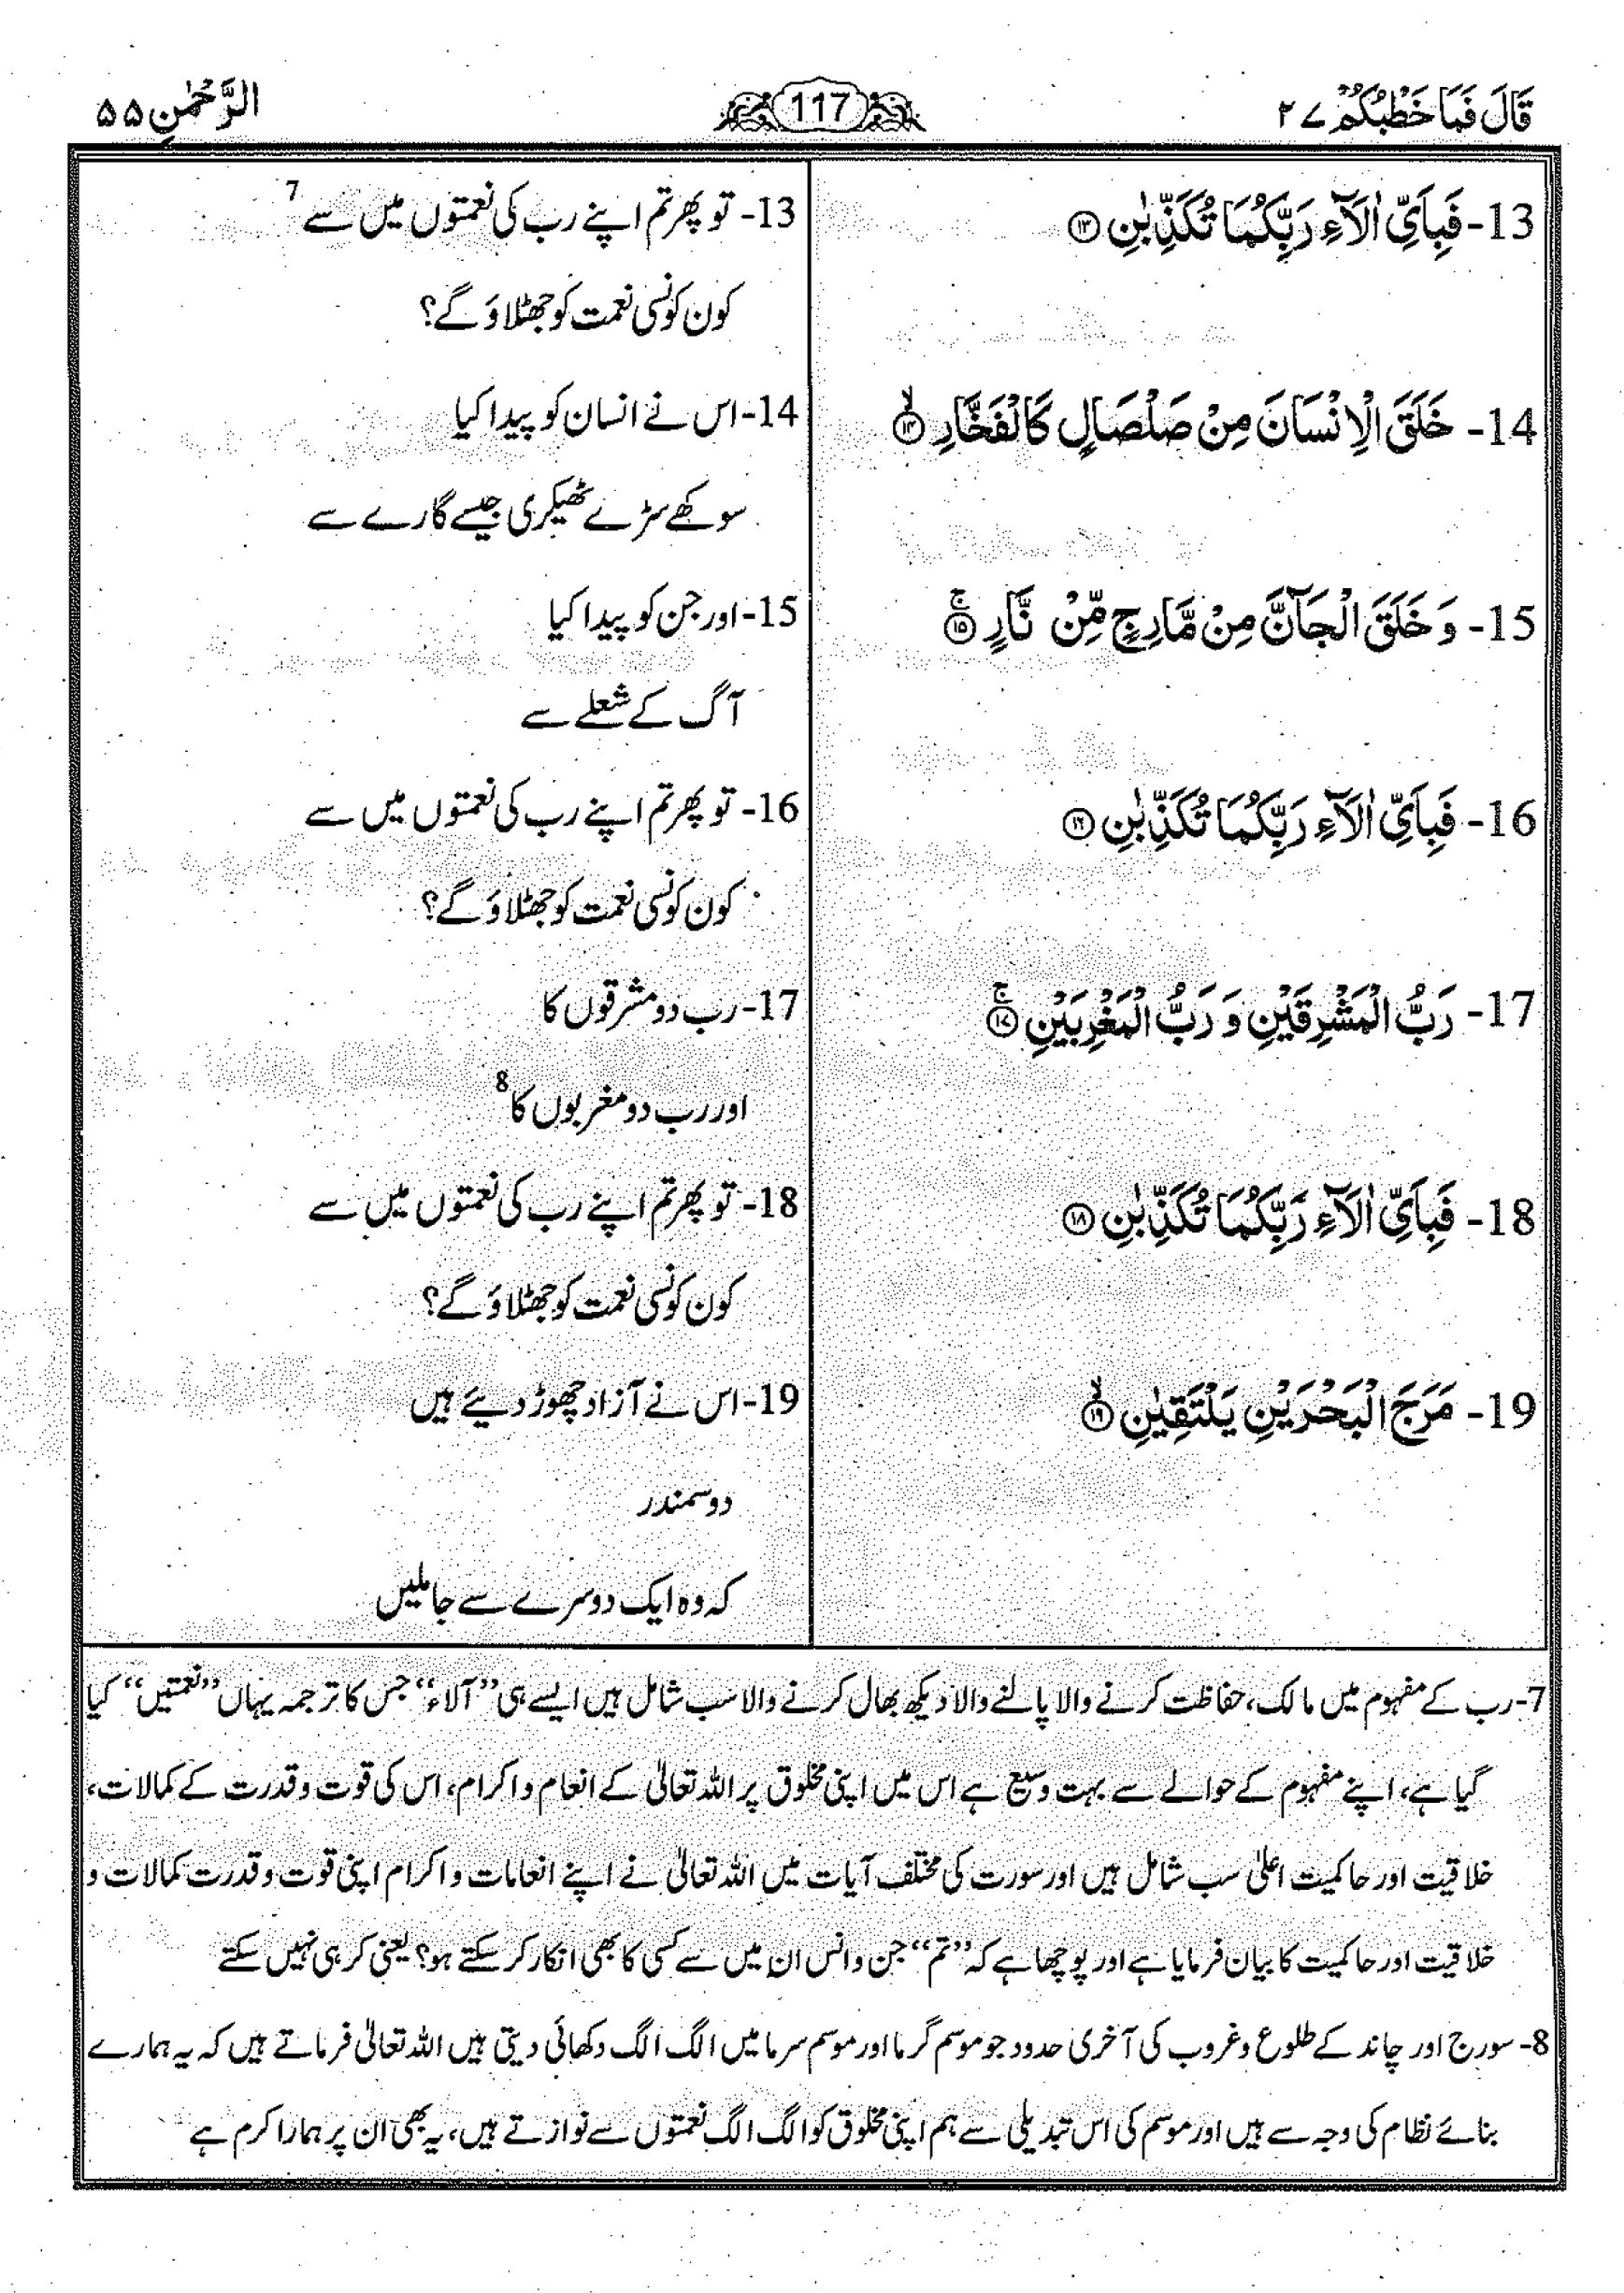 قَالَ فَمَا خَطْبُكُمْ ۲۷
117
الرَّحْمٰنِ ۵۵
13- فَبِاَیِّ اٰلَآءِ رَبِّكُمَا تُكَذِّبٰنِ ﴿۱۳﴾
14- خَلَقَ الْاِنْسَانَ مِنْ صَلْصَالٍ كَالْفَخَّارِ ﴿۱۴﴾ۙ
15- وَ خَلَقَ الْجَآنَّ مِنْ مَّارِجٍ مِّنْ نَّارٍ ﴿۱۵﴾ۚ
16- فَبِاَیِّ اٰلَآءِ رَبِّكُمَا تُكَذِّبٰنِ ﴿۱۶﴾
17- رَبُّ الْمَشْرِقَیْنِ وَ رَبُّ الْمَغْرِبَیْنِ ﴿۱۷﴾ۚ
18- فَبِاَیِّ اٰلَآءِ رَبِّكُمَا تُكَذِّبٰنِ ﴿۱۸﴾
19- مَرَجَ الْبَحْرَیْنِ یَلْتَقِیٰنِ ﴿۱۹﴾ۙ
13- تو پھر تم اپنے رب کی نعمتوں میں سے 7
کون کونسی نعمت کو جھٹلاؤ گے؟
14- اس نے انسان کو پیدا کیا
سوکھے سڑے ٹھیکری جیسے گارے سے
15- اور جن کو پیدا کیا
آگ کے شعلے سے
16- تو پھر تم اپنے رب کی نعمتوں میں سے
کون کونسی نعمت کو جھٹلاؤ گے؟
17- رب دو مشرقوں کا
اور رب دو مغربوں کا 8
18- تو پھر تم اپنے رب کی نعمتوں میں سے
کون کونسی نعمت کو جھٹلاؤ گے؟
19- اس نے آزاد چھوڑ دیئے ہیں
دو سمندر
کہ وہ ایک دوسرے سے جا ملیں
7- رب کے مفہوم میں مالک، حفاظت کرنے والا پالنے والا دیکھ بھال کرنے والا سب شامل ہیں ایسے ہی ’’آلاء‘‘ جس کا ترجمہ یہاں ’’نعمتیں‘‘ کیا
گیا ہے، اپنے مفہوم کے حوالے سے بہت وسیع ہے اس میں اپنی مخلوق پر اللہ تعالیٰ کے انعام و اکرام، اس کی قوت و قدرت کے کمالات،
خلاقیت اور حاکمیت اعلیٰ سب شامل ہیں اور سورت کی مختلف آیات میں اللہ تعالیٰ نے اپنے انعامات و اکرام اپنی قوت و قدرت کمالات و
خلاقیت اور حاکمیت کا بیان فرمایا ہے اور پوچھا ہے کہ ’’تم‘‘ جن و انس ان میں سے کسی کا بھی انکار کر سکتے ہو؟ یعنی کر ہی نہیں سکتے
8- سورج اور چاند کے طلوع و غروب کی آخری حدود جو موسم گرما اور موسم سرما میں الگ الگ دکھائی دیتی ہیں اللہ تعالیٰ فرماتے ہیں کہ یہ ہمارے
بنائے نظام کی وجہ سے ہیں اور موسم کی اس تبدیلی سے ہم اپنی مخلوق کو الگ الگ نعمتوں سے نوازتے ہیں، یہ بھی ان پر ہمارا کرم ہے